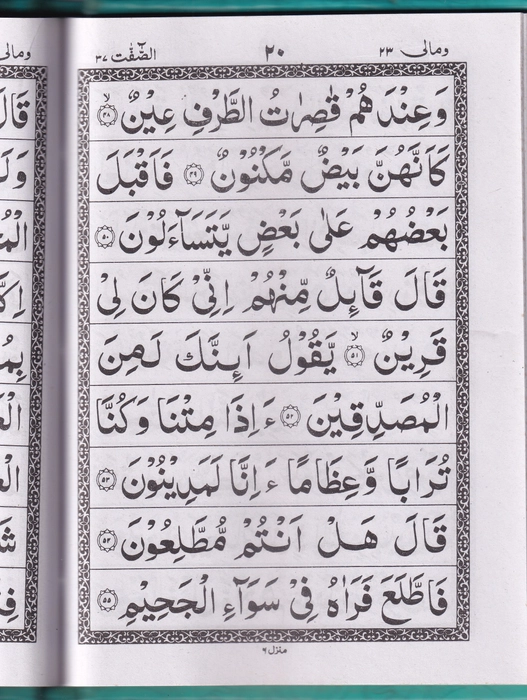 ومالی ۲۳ ۲۰ الصّٰٓفّٰت ۳۷
وَعِنْدَهُمْ قٰصِرٰتُ الطَّرْفِ عِيْنٌ ۙ﴿۴۸﴾
كَاَنَّهُنَّ بَيْضٌ مَّكْنُوْنٌ ﴿۴۹﴾ فَاَقْبَلَ
بَعْضُهُمْ عَلٰى بَعْضٍ يَّتَسَآءَلُوْنَ ﴿۵۰﴾
قَالَ قَآئِلٌ مِّنْهُمْ اِنِّىْ كَانَ لِىْ
قَرِيْنٌ ۙ﴿۵۱﴾ يَّقُوْلُ اَئِنَّكَ لَمِنَ
الْمُصَدِّقِيْنَ ﴿۵۲﴾ ءَاِذَا مِتْنَا وَكُنَّا
تُرَابًا وَّعِظَامًا ءَاِنَّا لَمَدِيْنُوْنَ ﴿۵۳﴾
قَالَ هَلْ اَنْتُمْ مُّطَّلِعُوْنَ ﴿۵۴﴾
فَاطَّلَعَ فَرَاٰهُ فِىْ سَوَآءِ الْجَحِيْمِ ﴿۵۵﴾
منزل ۶